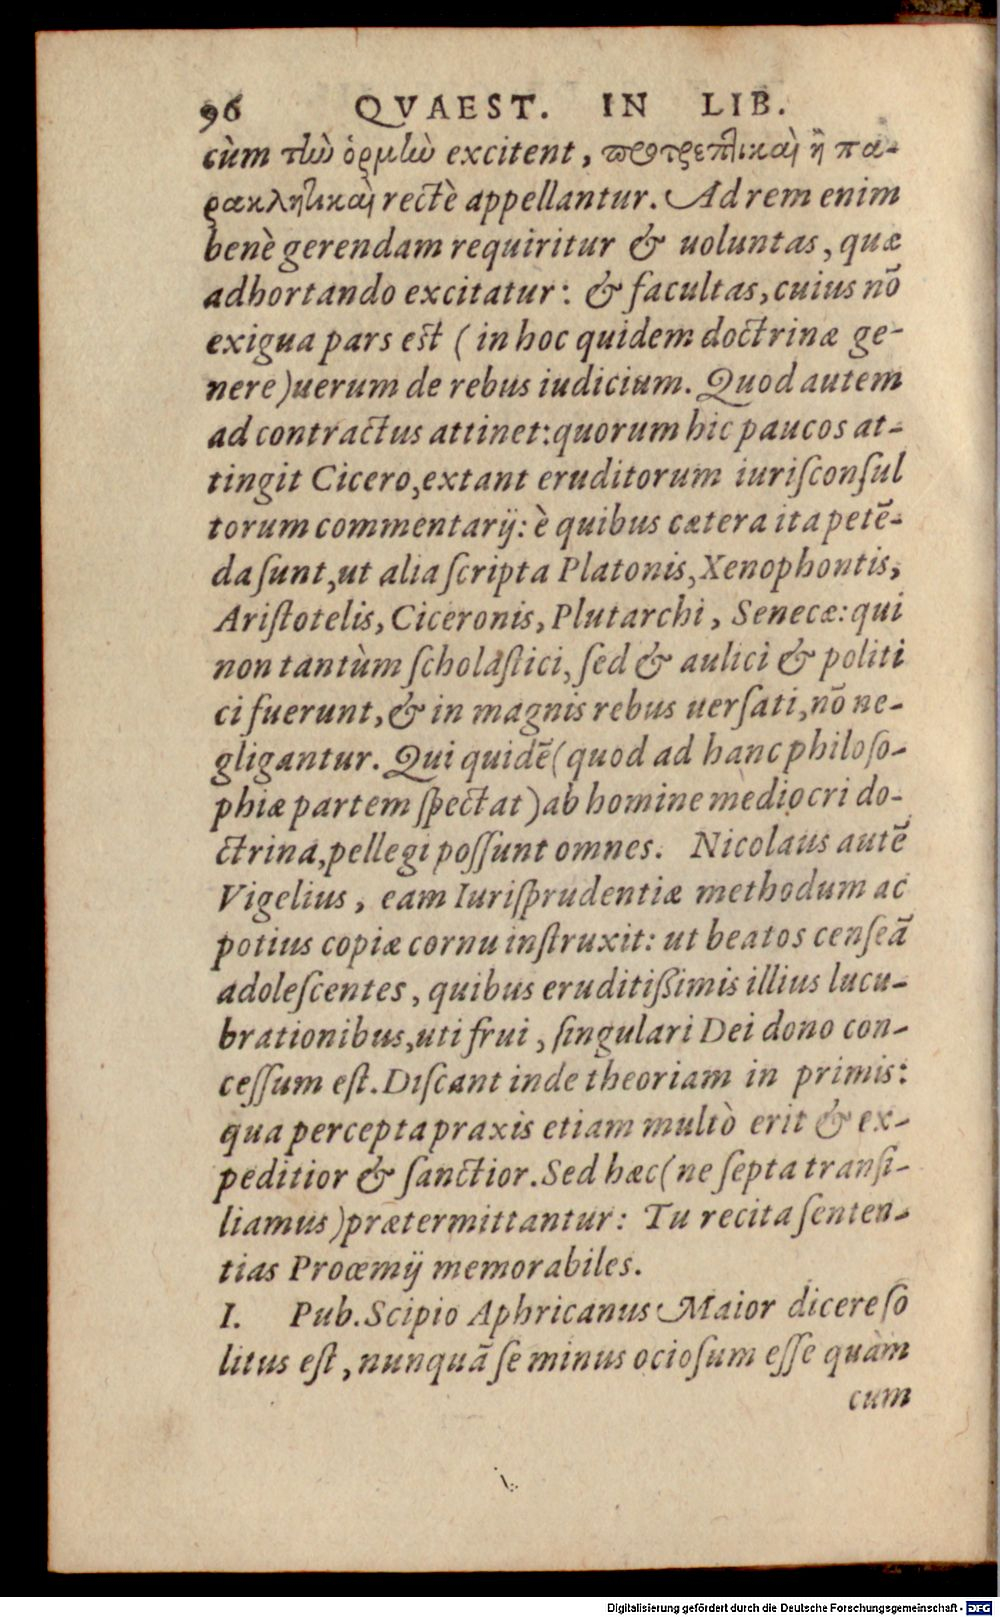 96 QVAEST. IN LIB.
cùm τὴν ὁρμὴν excitent, προτρεπτικαὶ ἢ πα-
ρακλητικαὶ rectè appellantur. Ad rem enim
benè gerendam requiritur & uoluntas, quæ
adhortando excitatur: & facultas, cuius nō
exigua pars est ( in hoc quidem doctrinæ ge-
nere )uerum de rebus iudicium. Quod autem
ad contractus attinet: quorum hic paucos at-
tingit Cicero, extant eruditorum iuriſconſul
torum commentarij: è quibus cætera ita petē-
da ſunt, ut alia ſcripta Platonis, Xenophontis,
Ariſtotelis, Ciceronis, Plutarchi, Senecæ: qui
non tantùm ſcholaſtici, ſed & aulici & politi
ci fuerunt, & in magnis rebus uerſati, nō ne-
gligantur. Qui quidē( quod ad hanc philoſo-
phiæ partem ſpectat )ab homine mediocri do-
ctrina, pellegi poſſunt omnes. Nicolaus autē
Vigelius, eam Iuriſprudentiæ methodum ac
potius copiæ cornu inſtruxit: ut beatos cenſeā
adoleſcentes, quibus eruditiſsimis illius lucu-
brationibus, uti frui, ſingulari Dei dono con-
ceſſum eſt. Diſcant inde theoriam in primis:
qua percepta praxis etiam multò erit & ex-
peditior & ſanctior. Sed hæc( ne ſepta tranſi-
liamus )prætermittantur: Tu recita ſenten-
tias Proœmij memorabiles.
I. Pub. Scipio Aphricanus Maior dicere ſo
litus eſt, nunquā ſe minus ocioſum eſſe quàm
cum
Digitalisierung gefördert durch die Deutsche Forschungsgemeinschaft - DFG